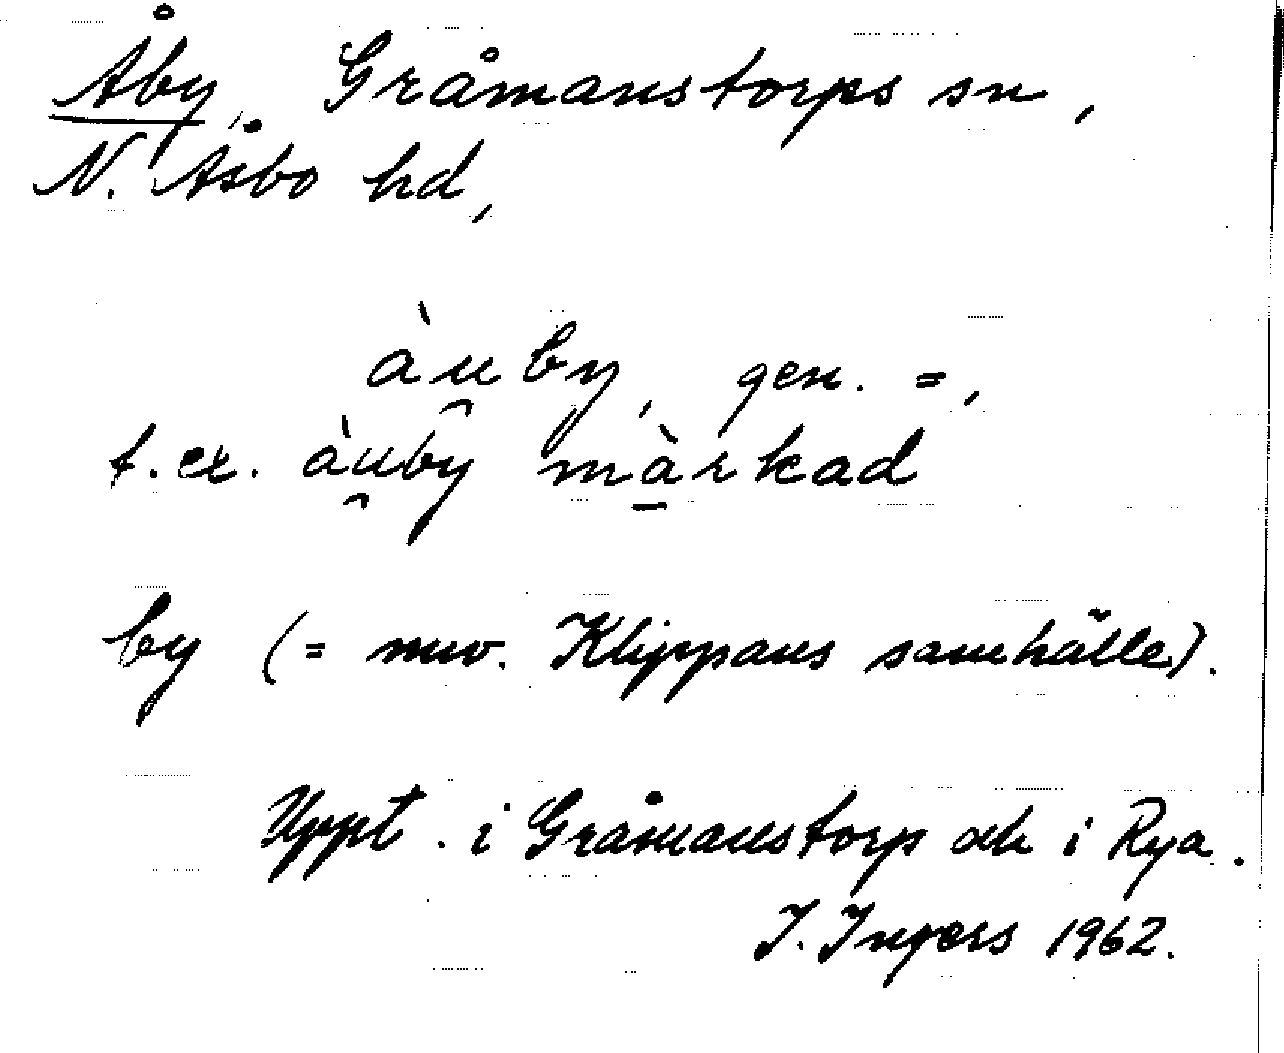 Åby, Gråmanstorps sn,
N. Åsbo hd,
àu̯by, gen. =,
t. ex. àu̯by mà̱rkad
by (= nuv. Klippans samhälle).
Uppt. i Gråmanstorp och i Rya.
I. Ingers 1962.